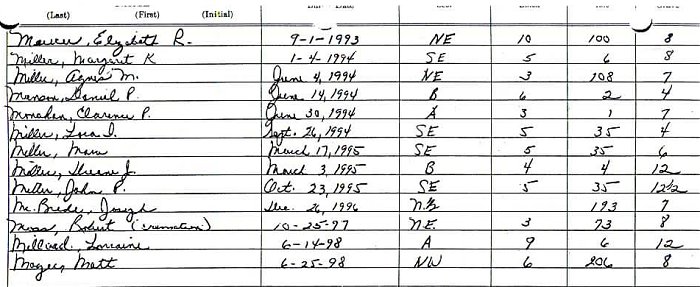 (Last) (First) (Initial)
Elizabeth R. 9-1-1993 NE 10 100 8
Miller, Margaret K 1-4-1994 SE 5 6 8
Miller, Agnes M. June 4, 1994 NE 3 108 7
Manson, Daniel P. June 14, 1994 B 6 2 4
Monahan, Clarence P. June 30, 1994 A 3 1 7
Miller, Lora D. Sept. 26, 1994 SE 5 35 4
Miller, March 17, 1995 SE 5 35 6
Miller, J. March 3, 1995 B 4 4 12
Miller, John P. Oct. 23, 1995 SE 5 35 12½
Mc Bride, Joseph Dec. 26, 1996 N½ 193 7
Moss, Robert (cremation) 10-25-97 N.E. 3 73 8
Millard, Lorraine 6-14-98 A 9 6 12
Magee, Matt 6-25-98 NW 6 206 8